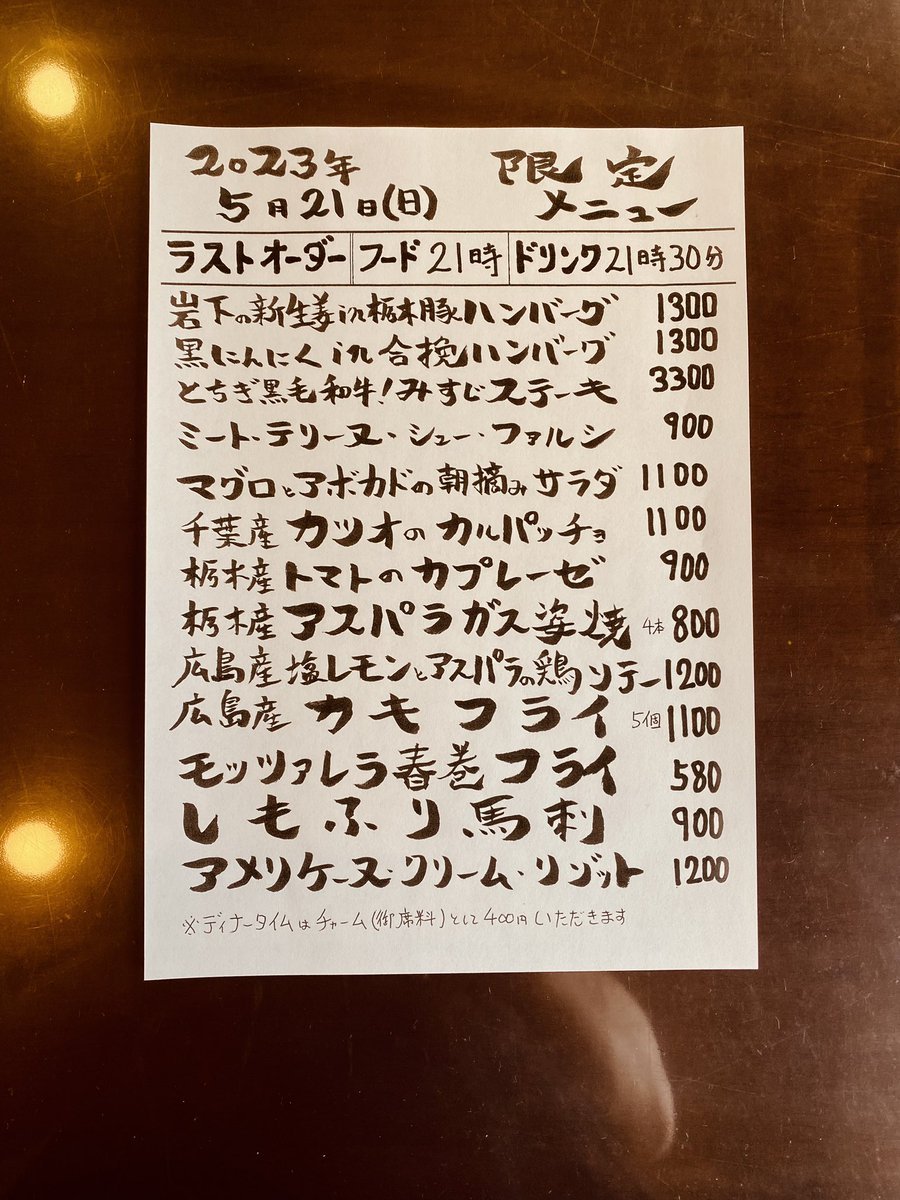 2023年 限定
5月21日(日) メニュー
ラストオーダー フード21時 ドリンク21時30分
岩下の新生姜in栃木豚ハンバーグ 1300
黒にんにくin合挽ハンバーグ 1300
とちぎ黒毛和牛!みすじステーキ 3300
ミート・テリーヌ・シュー・ファルシ 900
マグロとアボカドの朝摘みサラダ 1100
千葉産カツオのカルパッチョ 1100
栃木産トマトのカプレーゼ 900
栃木産アスパラガス姿焼 4本 800
広島産塩レモンとアスパラの鶏ソテー 1200
広島産カキフライ 5個 1100
モッツァレラ春巻フライ 580
しもふり馬刺 900
アメリケーヌ・クリーム・リゾット 1200
※ディナータイムはチャーム(御席料)として400円いただきます